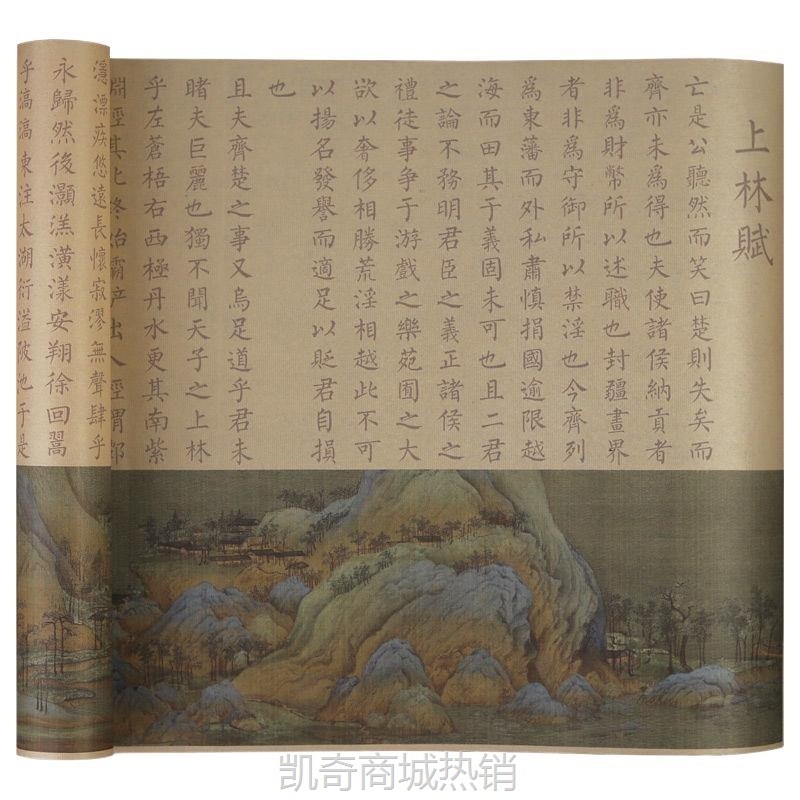 上林賦
亡是公聽然而笑曰楚則失矣而
齊亦未爲得也夫使諸侯納貢者
非爲財幣所以述職也封疆畫界
者非爲守御所以禁淫也今齊列
爲東藩而外私肅慎捐國逾限越
海而田其于義固未可也且二君
之論不務明君臣之義正諸侯之
禮徒事爭于游戲之樂苑囿之大
欲以奢侈相勝荒淫相越此不可
以揚名發譽而適足以貶君自損
也
且夫齊楚之事又烏足道乎君未
睹夫巨麗也獨不聞天子之上林
乎左蒼梧右西極丹水更其南紫
淵徑其北終始霸產出入涇渭
漂疾悠遠長懷寂漻無聲肆乎
永歸然後灝溔潢漾安翔徐回翯
乎滈滈東注太湖衍溢陂池于是
凯奇商城热销